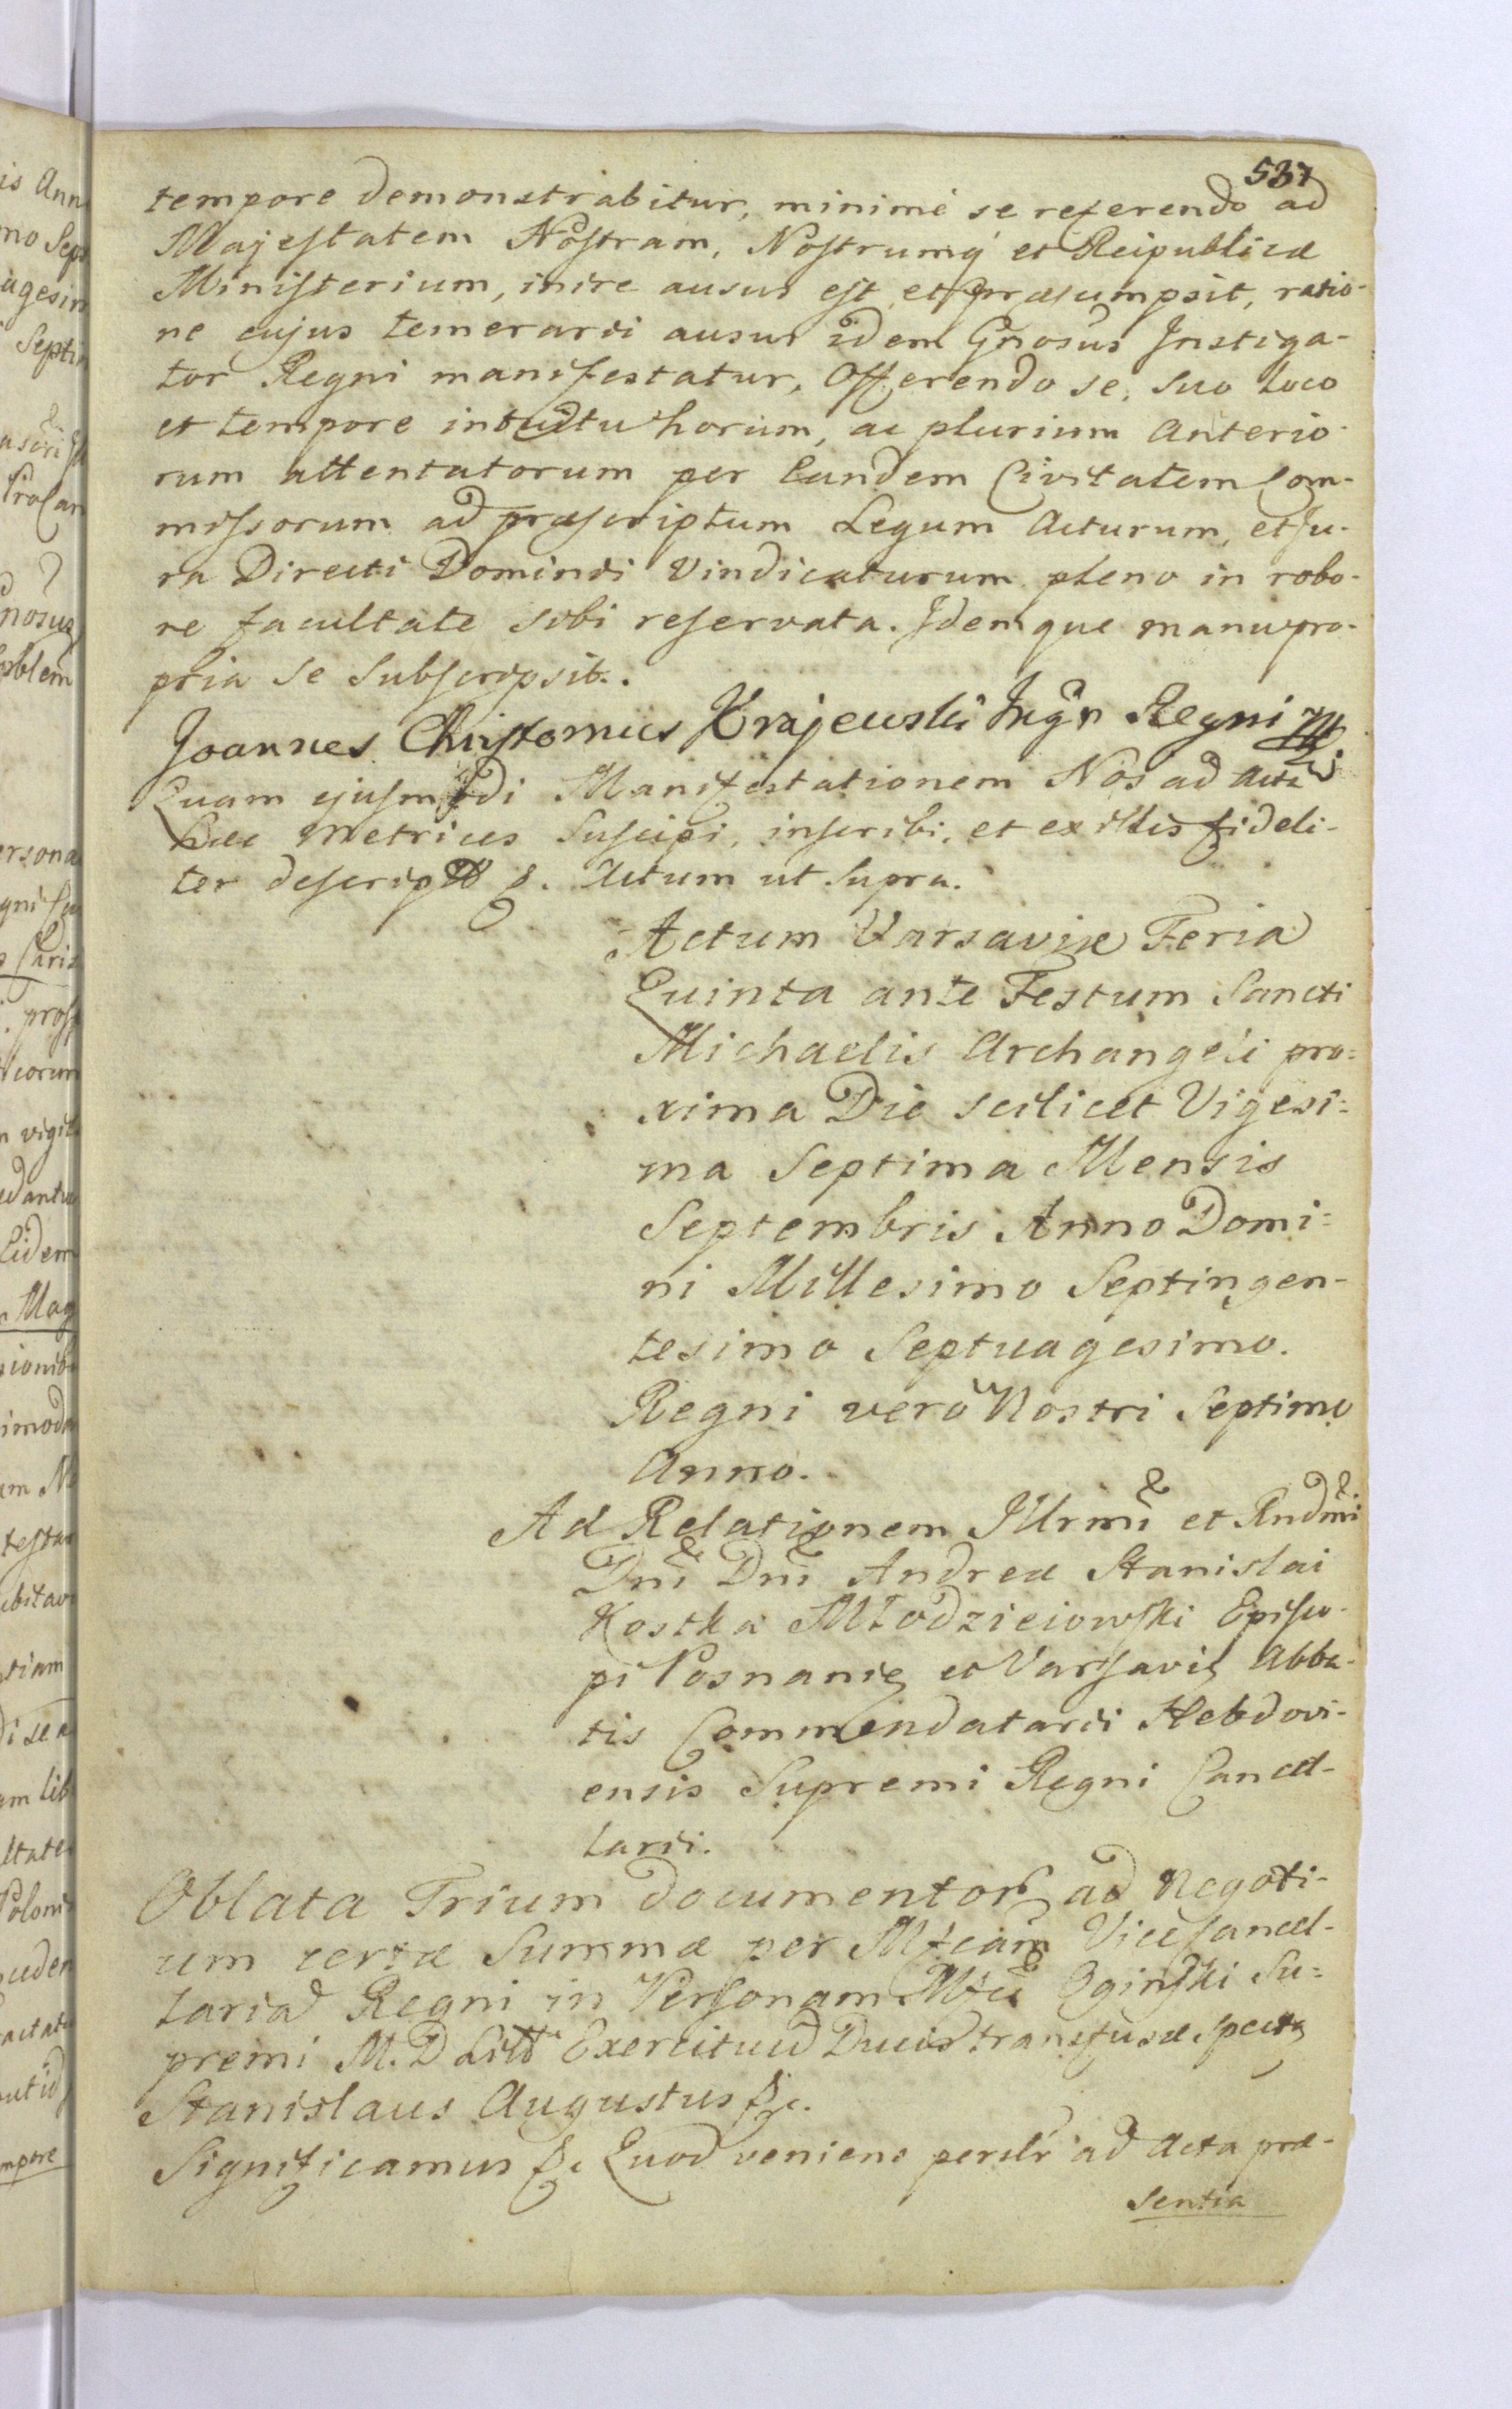 537
tempore demonstrabitur, minimè se referendo ad
Majestatem Nostram, Nostrumq́ et Reipublicæ
Ministerium, inire ausus est et præsumpsit, ratio-
ne cujus temerarii ausus idem Gnosus Instiga-
tor Regni manifestatur, Offerendo se, suo loco
et tempore intuitu horum, ac plurium anterio-
rum attentatorum per Eandem Civitatem Com-
missorum ad præscriptum Legum Acturum, et Ju-
ra Directi Dominii Vindicaturum pleno in robo-
re facultate sibi reservata. Idemque manu pro-
pria se subscripsit.
Joannes Chrisostomus Krajewski Ing̃r Regni
Quam ejusmodi Manifestationem Nos ad Acta
hæc Metrices Suscipi, inscribi, et ex illis fideli-
ter describi &. Actum ut Supra.
Actum Varsaviæ Feria
Quinta ante Festum Sancti
Michaelis Archangeli pro=
xima Die scilicet Vigesi=
ma Septima Mensis
Septembris Anno Domi=
ni Millesimo Septingen-
tesimo Septuagesimo.
Regni verò Nostri Septimo
Anno.
Ad Relationem Illrmi et Rndmi
Dni Dni Andreæ Stanislai
Kostka Młodzieiowski Episco-
pi Posnanię et Varsavię Abba-
tis Commendatarii Hebdovi-
ensis Supremi Regni Cancel-
larii.
Oblata Trium documentor ad Negoti-
um certæ Summæ per Mfcam Vice Cancel-
lariam Regni in Personam Mfci Oginski Su=
premi M. D Litt Exercituum Ducis transfusæ spectą
Stanislaus Augustus &c.
Significamus &c Quod veniens persllr ad Acta præ-
sentia